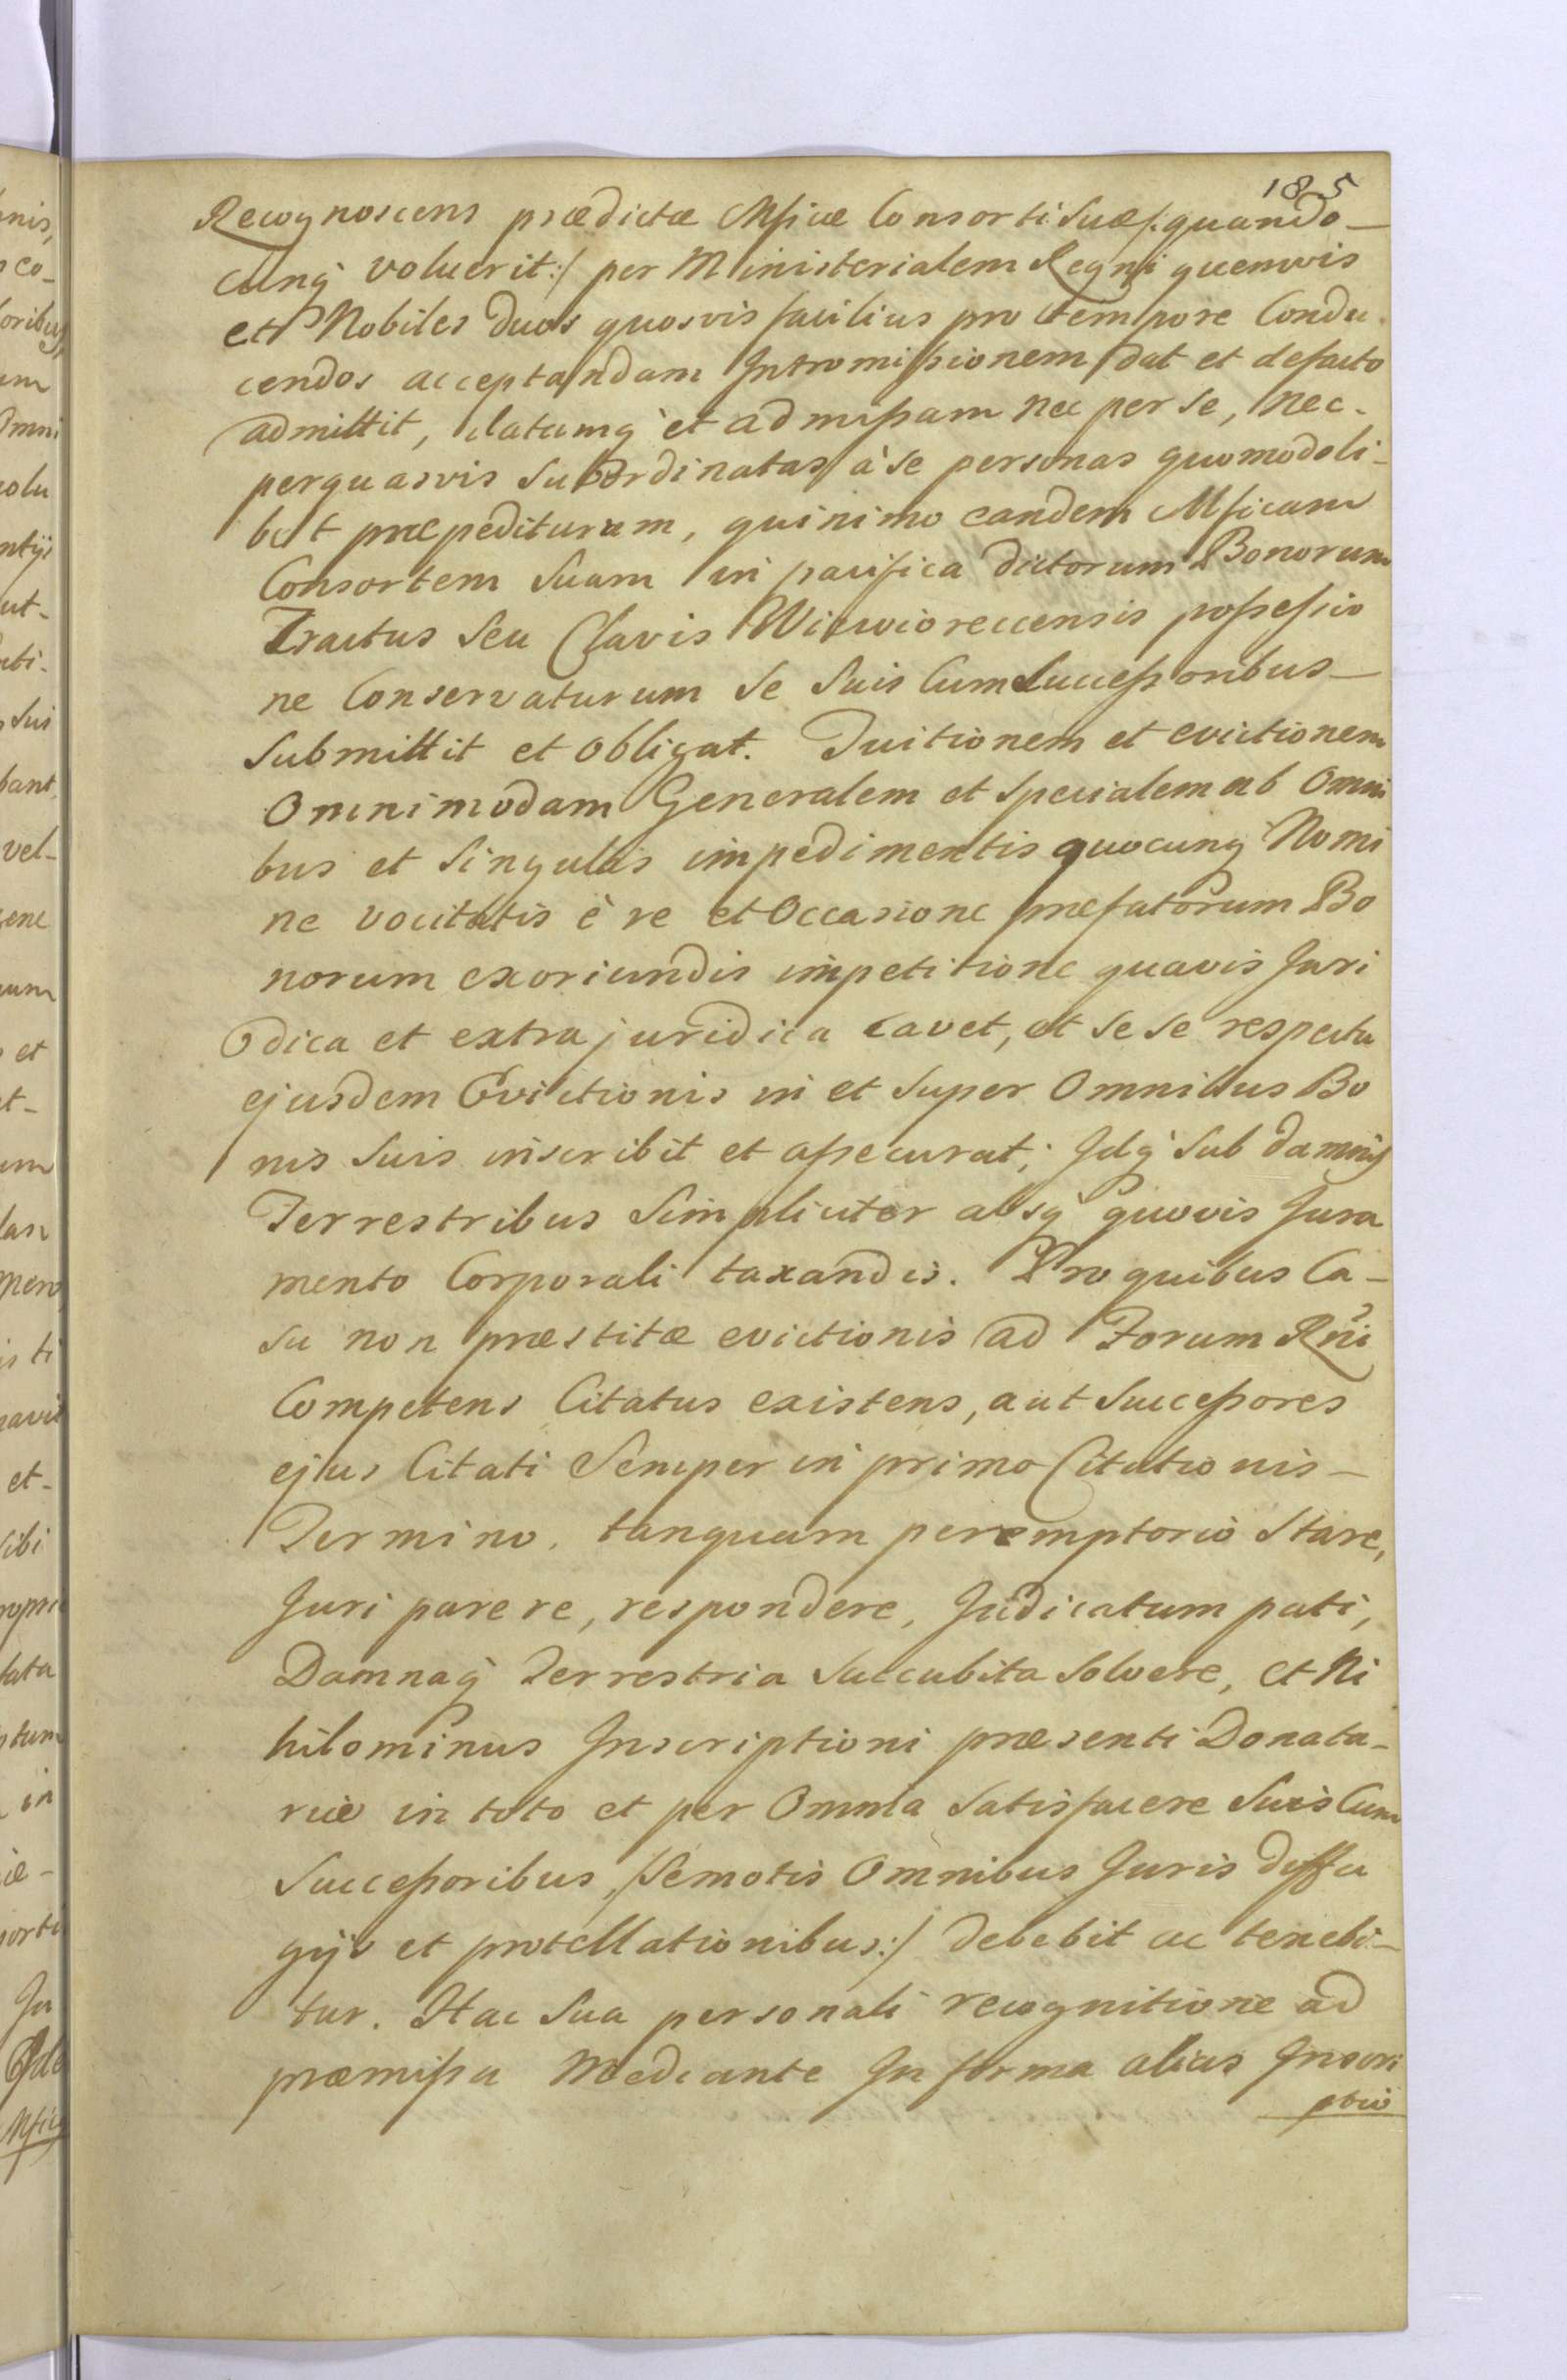 185
Recognoscens prædictæ Mficæ Consorti Suæ /: quando-
cunq̀ voluerit :/ per Ministerialem Regni quemvis
et Nobiles duos quosvis facilius pro tempore Condu-
cendos acceptandam Intromissionem dat et defacto
admittit, datamq̀ et admissam nec per se, nec-
perquasvis Subordinatas à se personas quomodoli-
bet præpediturum, quinimo eandem Mficam
Consortem Suam in pacifica dictorum Bonorum
Tractus Seu Clavis Wiewiorecensis possessio
ne Conservaturum Se Suis Cum Successoribus-
Submittit et Obligat. Tuitionem et evictionem
Omnimodam Generalem et Specialem ab Omni
bus et Singulis impedimentis quocunq̀ Nomi
ne vocitatis è re et Occasione præfatorum Bo
norum exoriundis impetitione quavis Juri
dica et extrajuridica cavet, et Se Se respectu
ejusdem Evictionis in et Super Omnibus Bo
nis Suis inscribit et assecurat; Idq̀ Sub damnis
Terrestribus Simpliciter absq̀ quovis Jura
mento Corporali taxandis. Pro quibus Ca-
su non præstitæ evictionis ad Forum Rñi
Competens Citatus existens, aut Successores
ejus Citati Semper in primo Citationis-
Termino, tanquam peremptorio Stare,
Juri parere, respondere, Judicatum pati,
Damnaq̀ Terrestria Succubita Solvere, et Ni
hilominus Inscriptioni præsenti Donata-
riæ in toto et per Omnia Satisfacere Suis Cum
Successoribus /: Semotis Omnibus Juris diffu
gijs et protellationibus :/ debebit ac tenebi-
tur. Hac Sua personali recognitione ad
præmissa Mediante In forma alias Inscri
ptio